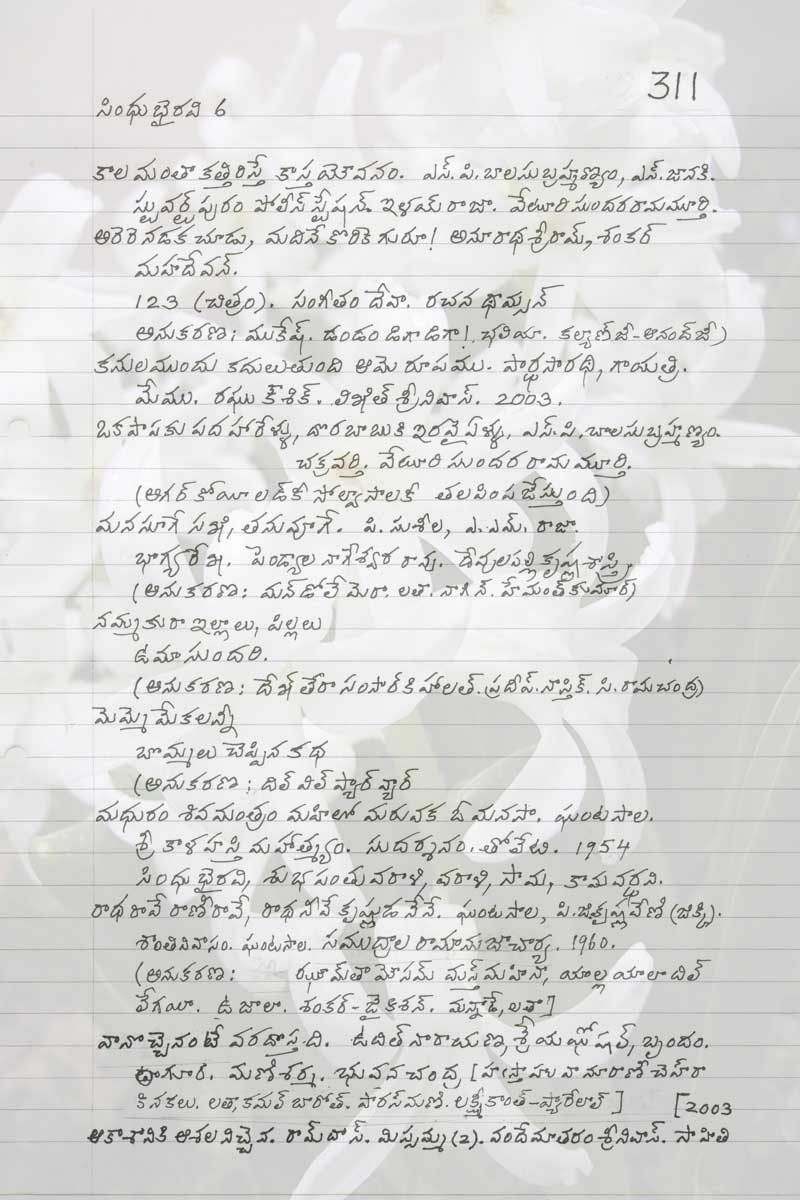 311
సింధు భైరవి 6
కాల మంతా కత్తిరిస్తే కాస్త యౌవనం. ఎస్. పి. బాలసుబ్రహ్మణ్యం, ఎస్. జానకి.
స్టువర్ట్ పురం పోలీస్ స్టేషన్. ఇళయ్ రాజా. వేటూరి సుందరరామమూర్తి.
అరెరె నడక చూడు, మదినే కొరికె గురూ! అనూరాధ శ్రీరామ్, శంకర్
మహదేవన్.
123 (చిత్రం). సంగీతం దేవా. రచన థామ్సన్
అనుకరణ: ముకేష్. డండం డిగా డిగా! ఛలియా. కల్యాణ్ జీ-ఆనంద్ జీ)
కనులముందు కదులుతుంది ఆమె రూపము. పార్థసారథి, గాయత్రి.
మేము. రఘు కౌశిక్. లిఖిత్ శ్రీనివాస్. 2003.
ఒక పాపకు పద హారేళ్ళు, దొరబాబుకి ఇరవై ఏళ్ళు. ఎస్. పి. బాలసుబ్రహ్మణ్యం.
చక్రవర్తి. వేటూరి సుందర రామ మూర్తి.
(అగర్ కోయీ లడ్ కీ సోల్వా సాలకీ తలపింప జేస్తుంది)
మనసూగే సఖి, తనువూగే. పి. సుశీల, ఎ. ఎమ్. రాజా.
భాగ్యరేఖ. పెండ్యాల నాగేశ్వర రావు. దేవులపల్లి కృష్ణ శాస్త్రి.
(అనుకరణ: మన్ డోలే మెరా. లతా. నాగిన్. హేమంత్ కుమార్)
నమ్మకురా ఇల్లాలు, పిల్లలు
ఉమాసుందరి.
(అనుకరణ: దేఖ్ తేరా సంసార్ కి హాలత్. ప్రదీప్. నాస్తిక్. సి. రామచంద్ర)
మెమ్మె మేకలన్నీ
బొమ్మలు చెప్పిన కథ
(అనుకరణ: దిల్ విల్ ప్యార్ వ్యార్
మధురం శివమంత్రం మహిలో మరువక ఓ మనసా. ఘంటసాల.
శ్రీ కాళహస్తి మహాత్మ్యం. సుదర్శనం. తోలేటి. 1954
సింధు భైరవి, శుభ పంతువరాళి, వరాళి, సామ, కామవర్ధని.
రాధ రావే రాణీ రావే, రాధ నీవే కృష్ణుడ నేనే. ఘంటసాల, పి. జి. కృష్ణ వేణి (జిక్కి).
శాంతినివాసం. ఘంటసాల. సముద్రాల రామానుజాచార్య. 1960.
(అనుకరణ: ఝూమ్ తా మౌసమ్ మస్త్ మహీనా, యాల్ల యాలా దిల్
లేగయీ. ఉజాలా. శంకర్-జైకిశన్. మన్నాడే, లతా]
వానొచ్చెనంటే వరదొస్తది. ఉదిత్ నారాయణ, శ్రేయ ఘోషల్, బృందం.
ఠాగూర్. మణిశర్మ. భువన చంద్ర [హఁస్తా హువా నూరానీ చెహ్రా
కి నకలు. లతా, కమల్ బారోత్. పారస్ మణి. లక్ష్మీకాంత్-ప్యారేలాల్] [2003
ఆకాశానికి ఆశల నిచ్చెన. రామ్ దాస్. మిస్సమ్మ (2). వందేమాతరం శ్రీనివాస్. సాహితి